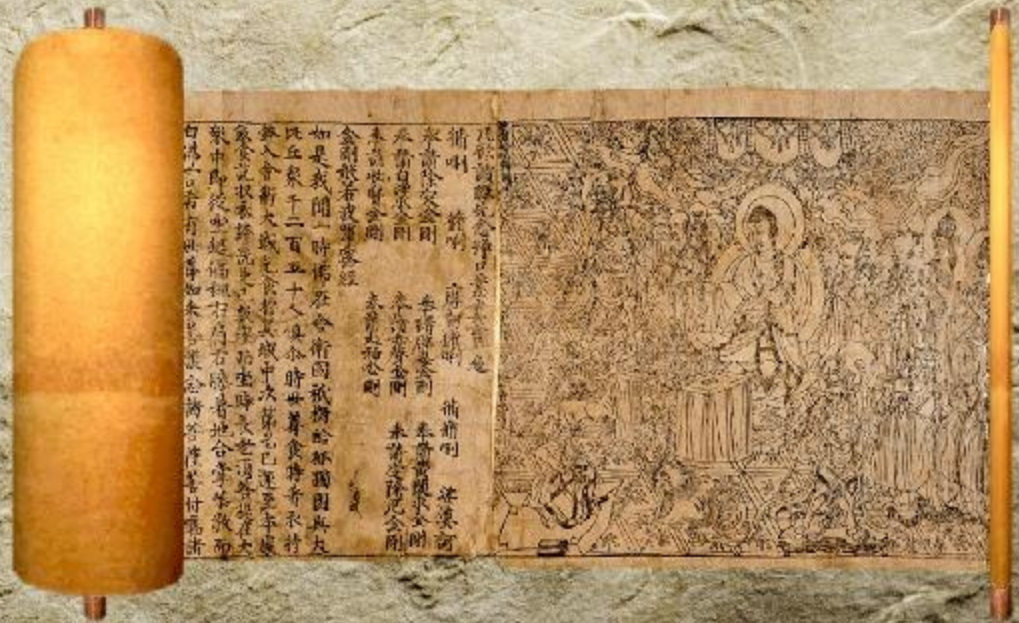 脩唎 脩唎 摩訶脩唎 脩脩唎 娑婆訶
奉請除災金剛 奉請辟毒金剛 奉請黃隨求金剛
奉請白淨水金剛 奉請赤聲金剛 奉請定除厄金剛
奉請紫賢金剛 奉請大神金剛
金剛般若波羅蜜經
如是我聞一時佛在舍衛國祇樹給孤獨園與大
比丘眾千二百五十人俱尒時世尊食時著衣持
鉢入舍衛大城乞食於其城中次第乞已還至本處
飯食訖收衣鉢洗足已敷座而坐時長老須菩提在大
眾中即從座起偏袒右肩右膝著地合掌恭敬而
白佛言希有世尊如來善護念諸菩薩善付囑諸